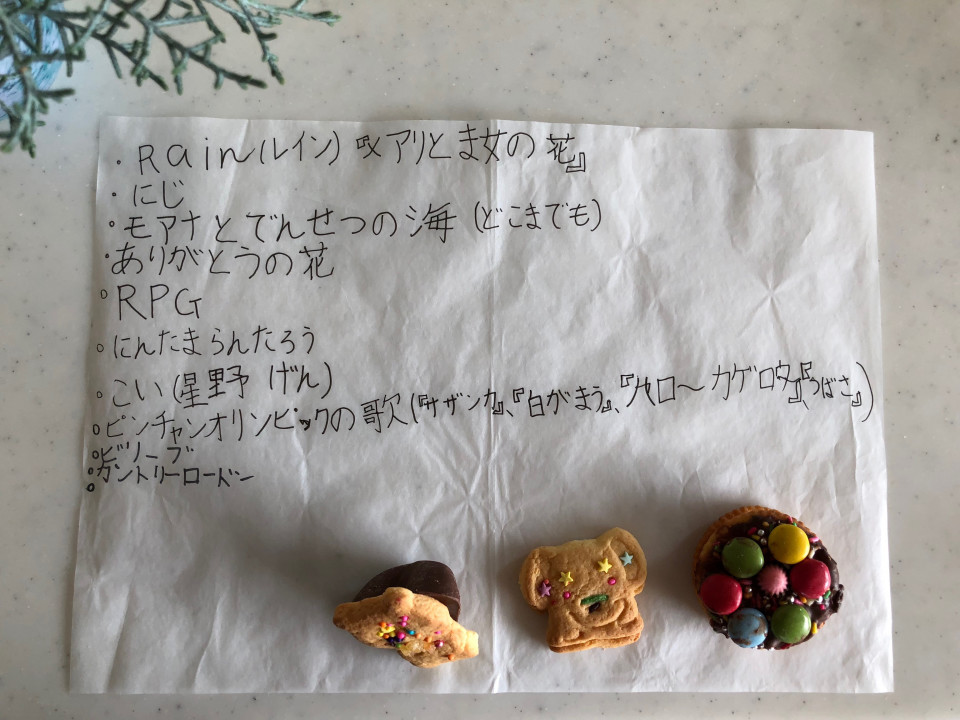 ・Rain(レイン) 『メアリと ま女の 花』
・にじ
・モアナとでんせつの海 (どこまでも)
・ありがとうの花
○RPG
○にんたまらんたろう
○こい(星野 げん)
○ピンチャンオリンピックの歌(『サザンカ』、『白がまう』、『ハロ〜 カゲロウ』、『つばさ』)
○ビリーブ
○カントリーロードン
○